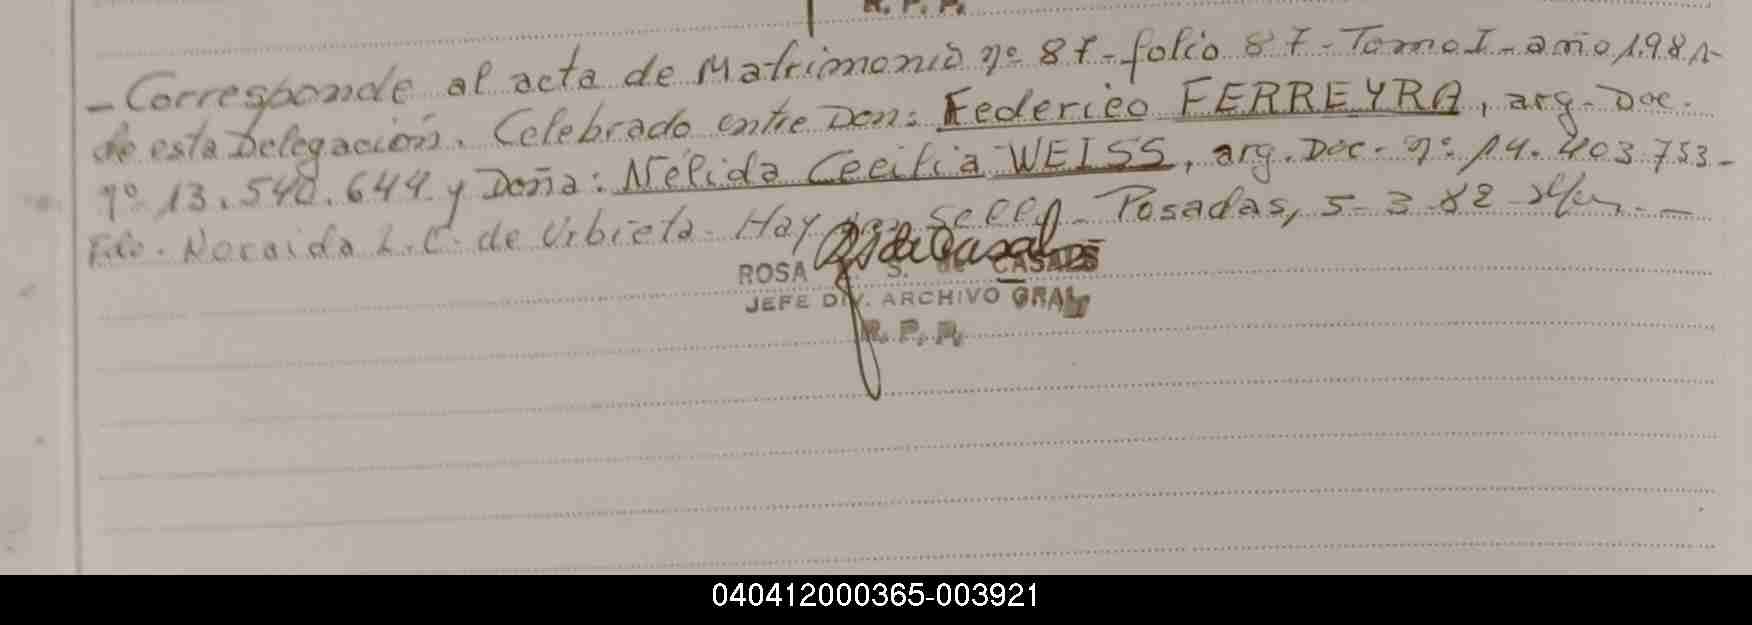 R. P. P.
- Corresponde al acta de Matrimonio nº 87 - folio 87 - Tomo I - año 1981-
de esta Delegación. Celebrado entre Don: Federico FERREYRA, arg. Doc.
nº 13.540.644 y Doña: Nélida Cecilia WEISS, arg. Doc. nº 14.403.753-
Fdo. Noraida L. C. de Urbieta. Hay un sello - Posadas, 5-3-82
ROSA S. de CASALS
JEFE DIV. ARCHIVO GRAL
R. P. P.
040412000365-003921